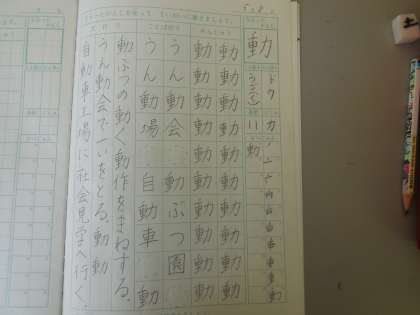 動
ドウ
うご(く)
11
力
動
動動動動動動動動動動
動動動動動動動動動動
うん動会
動ぶつ園
うん動場
自動車
動
動ぶつの動く動作をまねする。
うん動会で一いをとる。動動
自動車工場に社会見学へ行く。